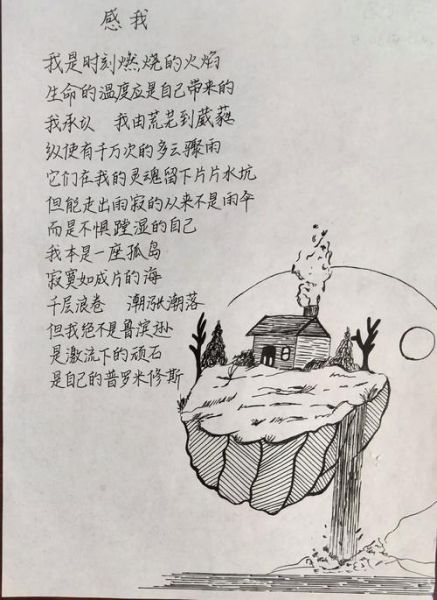 感我
我是时刻燃烧的火焰
生命的温度应是自己带来的
我承认 我由荒芜到葳蕤
纵使有千万次的多云骤雨
它们在我的灵魂留下片片水坑
但能走出雨寂的从来不是雨伞
而是不惧蹚湿的自己
我本是一座孤岛
寂寞如成片的海
千层浪卷 潮涨潮落
但我绝不是鲁滨逊
是激流下的顽石
是自己的普罗米修斯